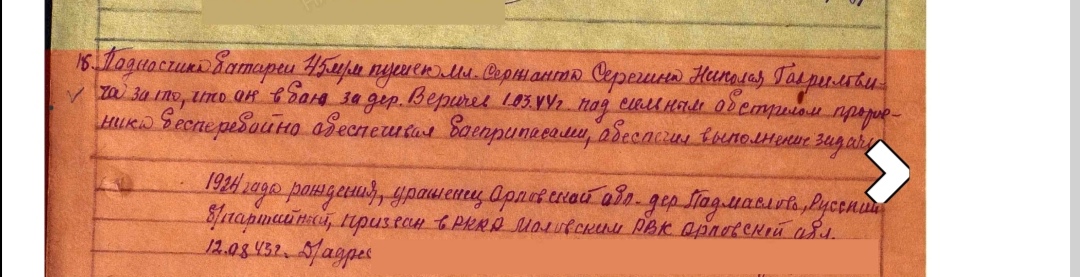 15. Подносчика батареи 45 м/м пушек мл. Сержанта Серегина Николая Гаврилови-
ча за то, что он в бою за дер. Веричев 1.03.44г. под сильным обстрелом против-
ника бесперебойно обеспечивал боеприпасами, обеспечил выполнение задачи
1924 года рождения, уроженец Орловской обл. дер. Подмаслово, Русский
б/партийный, призван в РККА РВК Орловской обл.
12.08.43г. Д/адрес